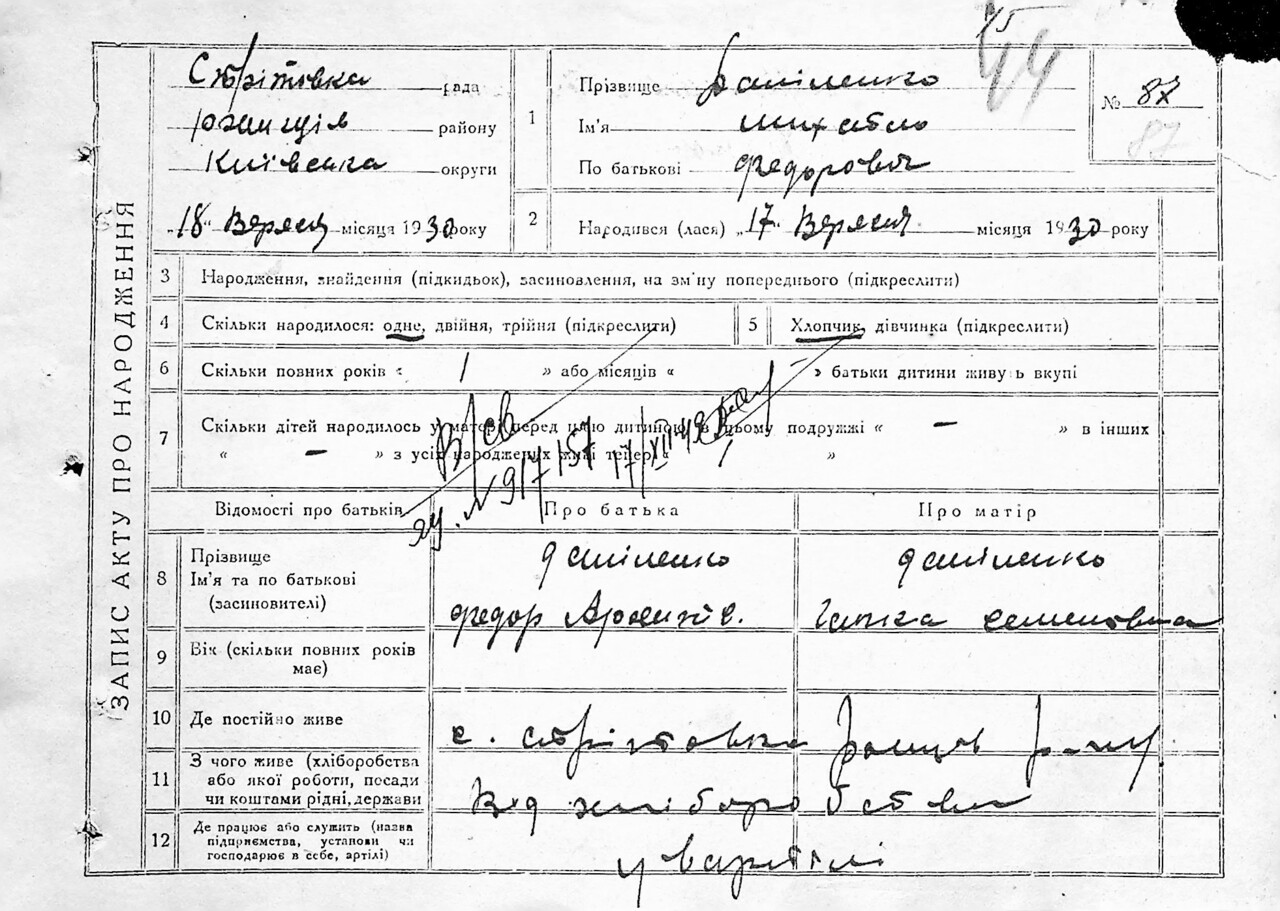 ЗАПИС АКТУ ПРО НАРОДЖЕННЯ
Стрітовка рада
району
Київська округи
„18“ Вересня місяця 1930 року
1
Прізвище Даніленко
Ім'я Михайло
По батькові Федорович
44
№ 87
87
2 Народився (лася) „17“ Вересня місяця 1930 року
3 Народження, знайдення (підкидьок), засиновлення, на зм'ну попереднього (підкреслити)
4 Скільки народилося: одне, двійня, трійня (підкреслити)
5 Хлопчик, дівчинка (підкреслити)
6 Скільки повних років « 1 » або місяців « – » батьки дитини живуть вкупі
7 Скільки дітей народилось у матері перед цією дитиною в цьому подружжі « — » в інших
« — » з усіх народжених живі тепер « »
Відомості про батьків
Про батька
Про матір
8 Прізвище
Ім'я та по батькові
(засиновителі)
Даніленко
Федор
Даніленко
Гапка Семеновна
9 Вік (скільки повних років
має)
10 Де постійно живе
с. Стрітовка
11 З чого живе (хліборобства
або якої роботи, посади
чи коштами рідні, держави
Від хліборобства
12 Де працює або служить (назва
підприємства, установи чи
господарює в себе, артілі)
у вартілі